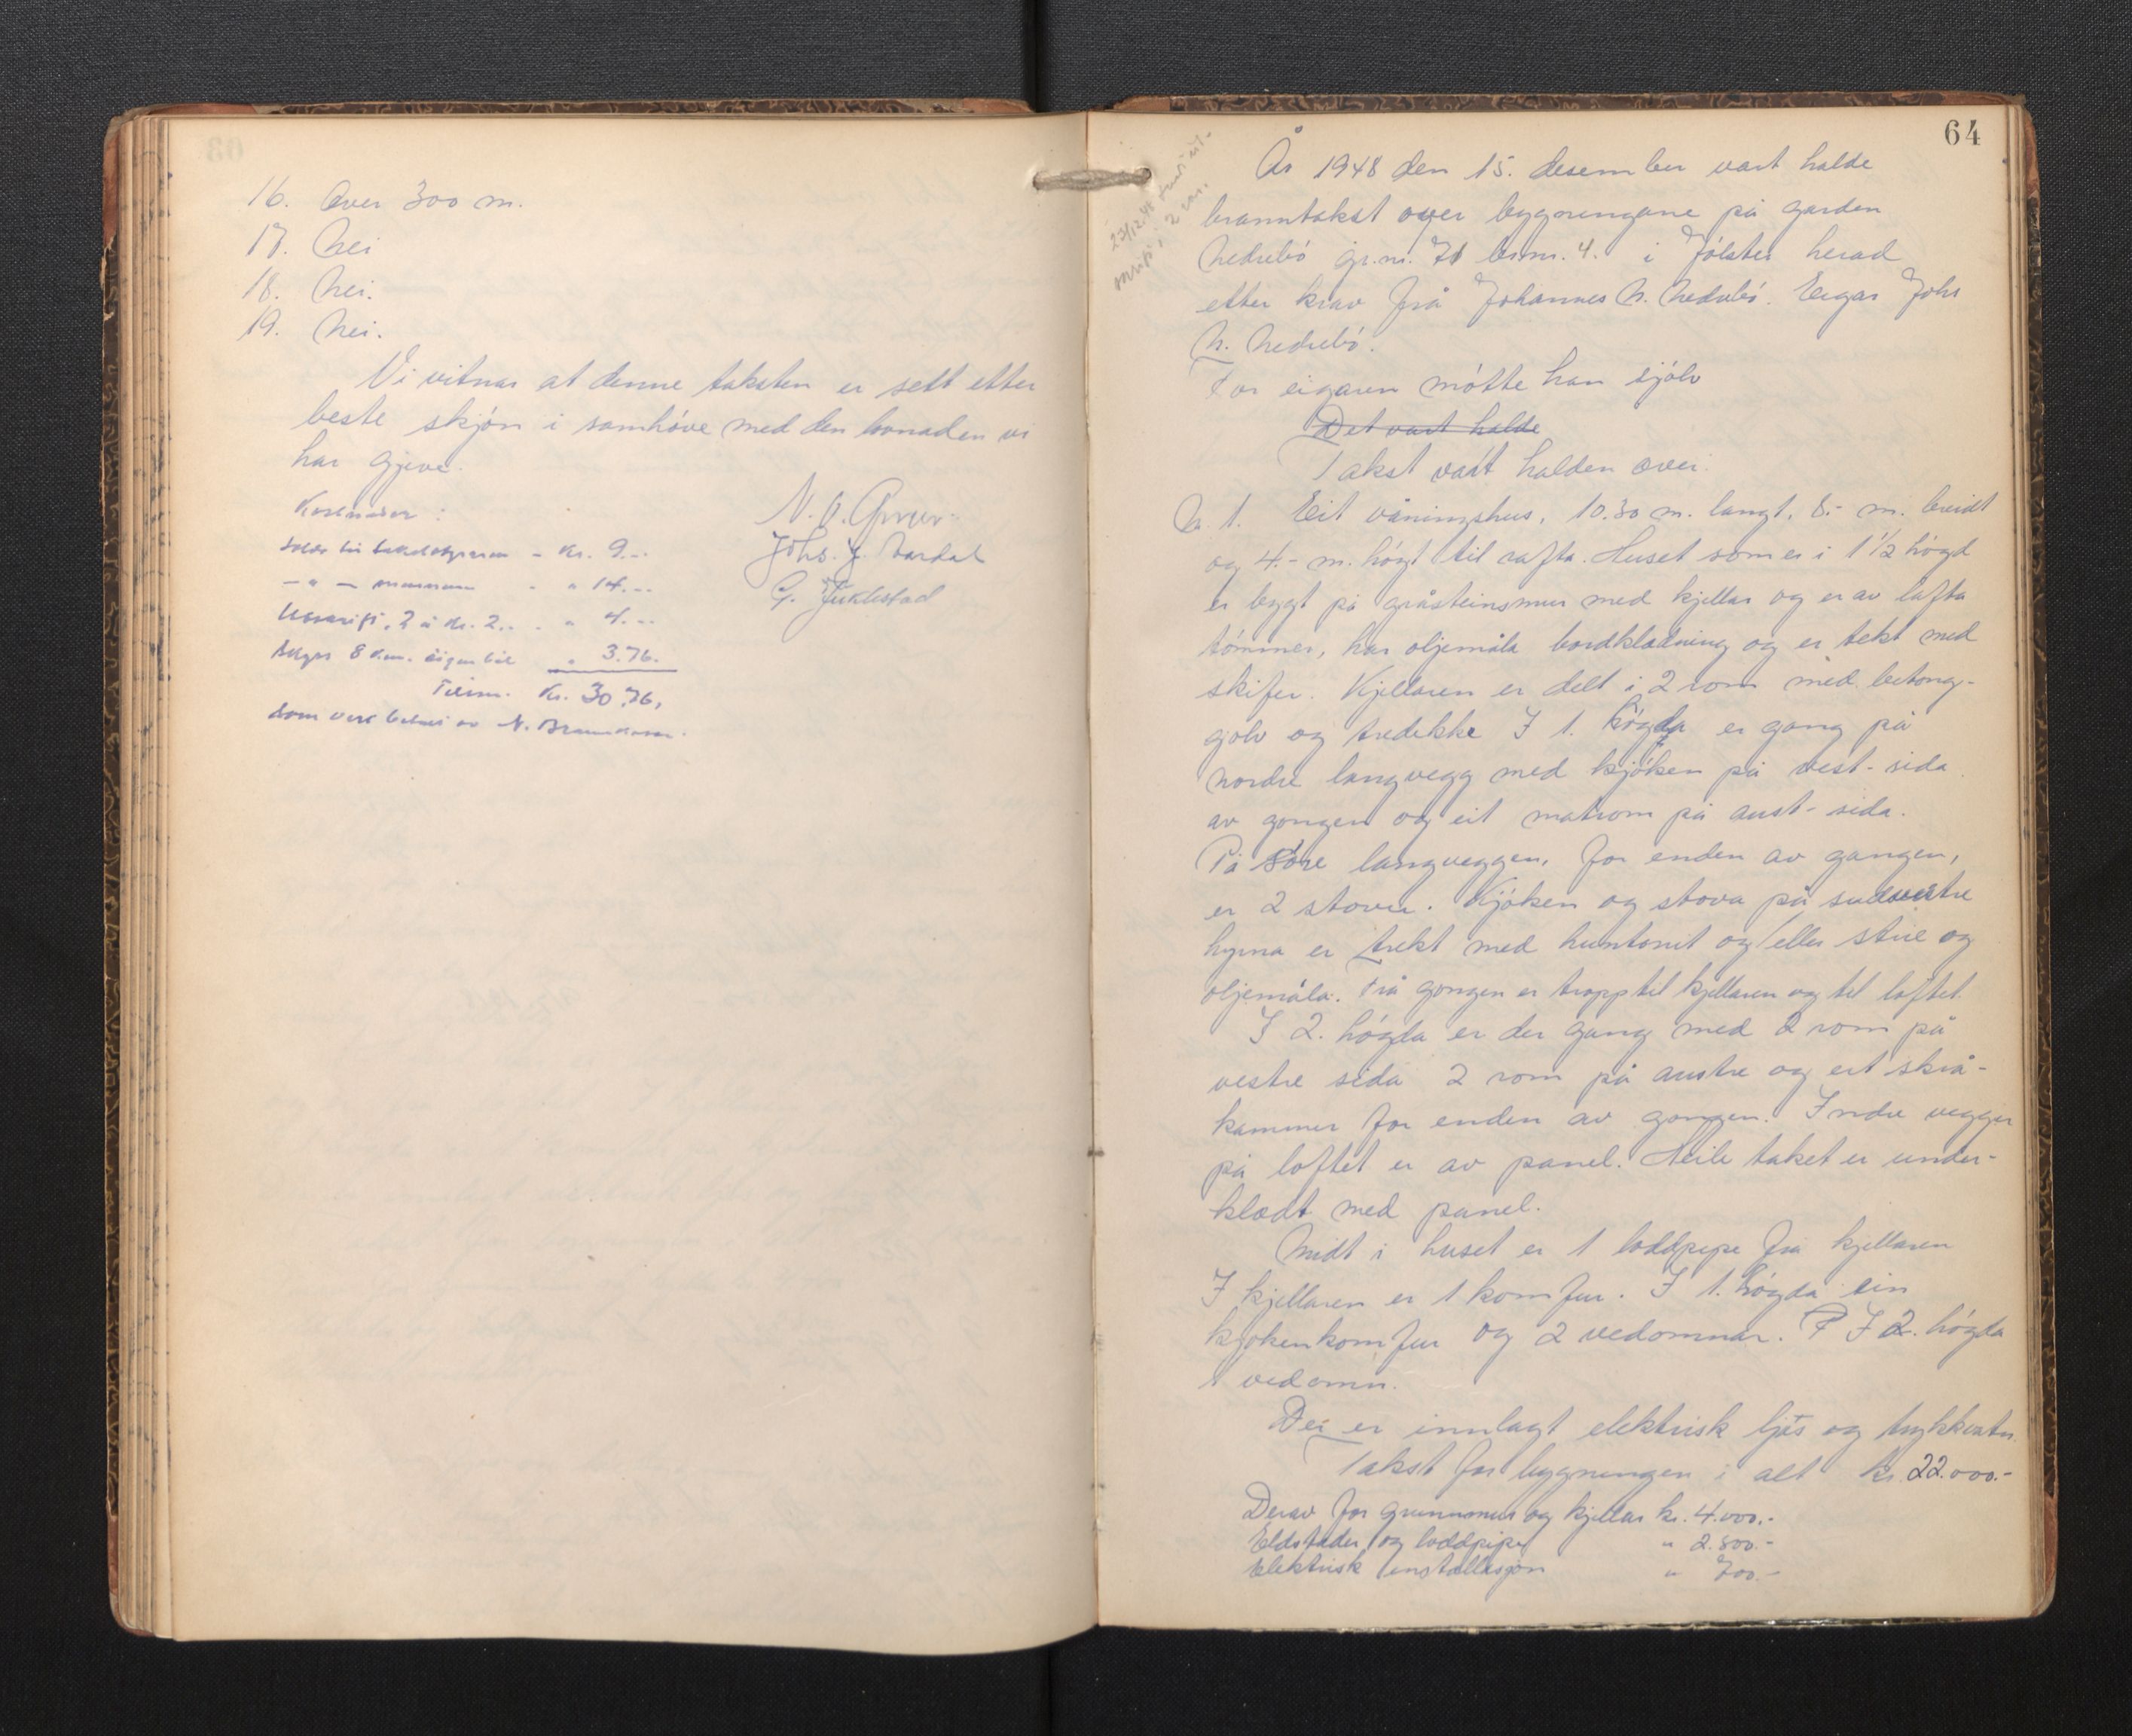 16. Over 300 m.
17. Nei
18. Nei.
19. Nei.
Vi vitnar at denne taksten er sett etter
beste skjøn i samhöve med den lovnaden vi
har gjeve.
Kostnader:
- kr. 9.--
- " - " 14.--
Utskrift, 2 à kr. 2.. - " 4.--
8 km. eigen bil " 3.76.
Tilsm. Kr. 30.76,
som vert betalt av N. Brannkasse.
N. O.
Johs. J. Aardal
G.
64
23/12.48
2
År 1948 den 15. desember vart halde
branntakst over bygningane på garden
Nedrebó gr.nr. 71 br.nr. 4. i Jólster herad
etter krav frå Johannes N. Nedrebó. Eigar Johs
N. Nedrebó.
For eigaren mótte han sjólv
Det vart halde
Takst vart halden over:
N. 1. Eit våningshus, 10.30 m. langt, 8.- m. breidt
og 4.- m. högt til rafta. Huset som er i 1 1/2 högd
er bygt på gråsteinsmur med kjellar og er av lafta
tómmer, har oljemåla bordklædning og er tekt med
skifer. Kjellaren er delt i 2 rom med betong-
golv og tredekke I 1. högda er gang på
nordre langvegg med kjóken på vest-sida
av gongen og eit matrom på aust-sida.
På Söre langveggen, for enden av gangen,
er 2 stover. Kjóken og stova på sudvestre
hyrna er trekt med huntonit og/eller strie og
oljemåla. Frå gongen er trapp til kjellaren og til loftet.
I 2. högda er der gang med 2 rom på
vestre sida 2 rom på austre og eit skrå-
kammer for enden av gongen. Indre vegger
på loftet er av panel. Heile taket er under-
klædt med panel.
Midt i huset er 1 loddpipe frå kjellaren
I kjellaren er 1 komfur. I 1. högda ein
kjökenkomfur og 2 vedomnar. I 2. högda
1 vedomn.
Der er innlagt elektrisk ljós og trykkvatn.
Takst for bygningen i alt kr. 22.000.-
Derav for grunnmur og kjellar kr. 4.000.-
Eldstader og loddpipe " 2.800.-
Elektrisk installasjon " 700.-